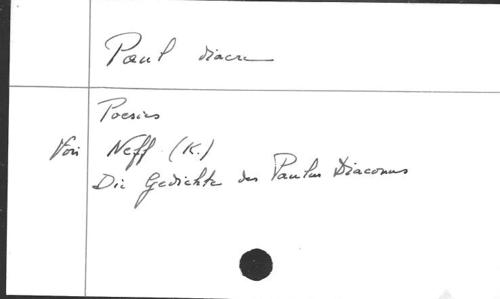 Paul diacre
Poesies
Voir Neff (K.)
Die Gedichte des Paulus Diaconus